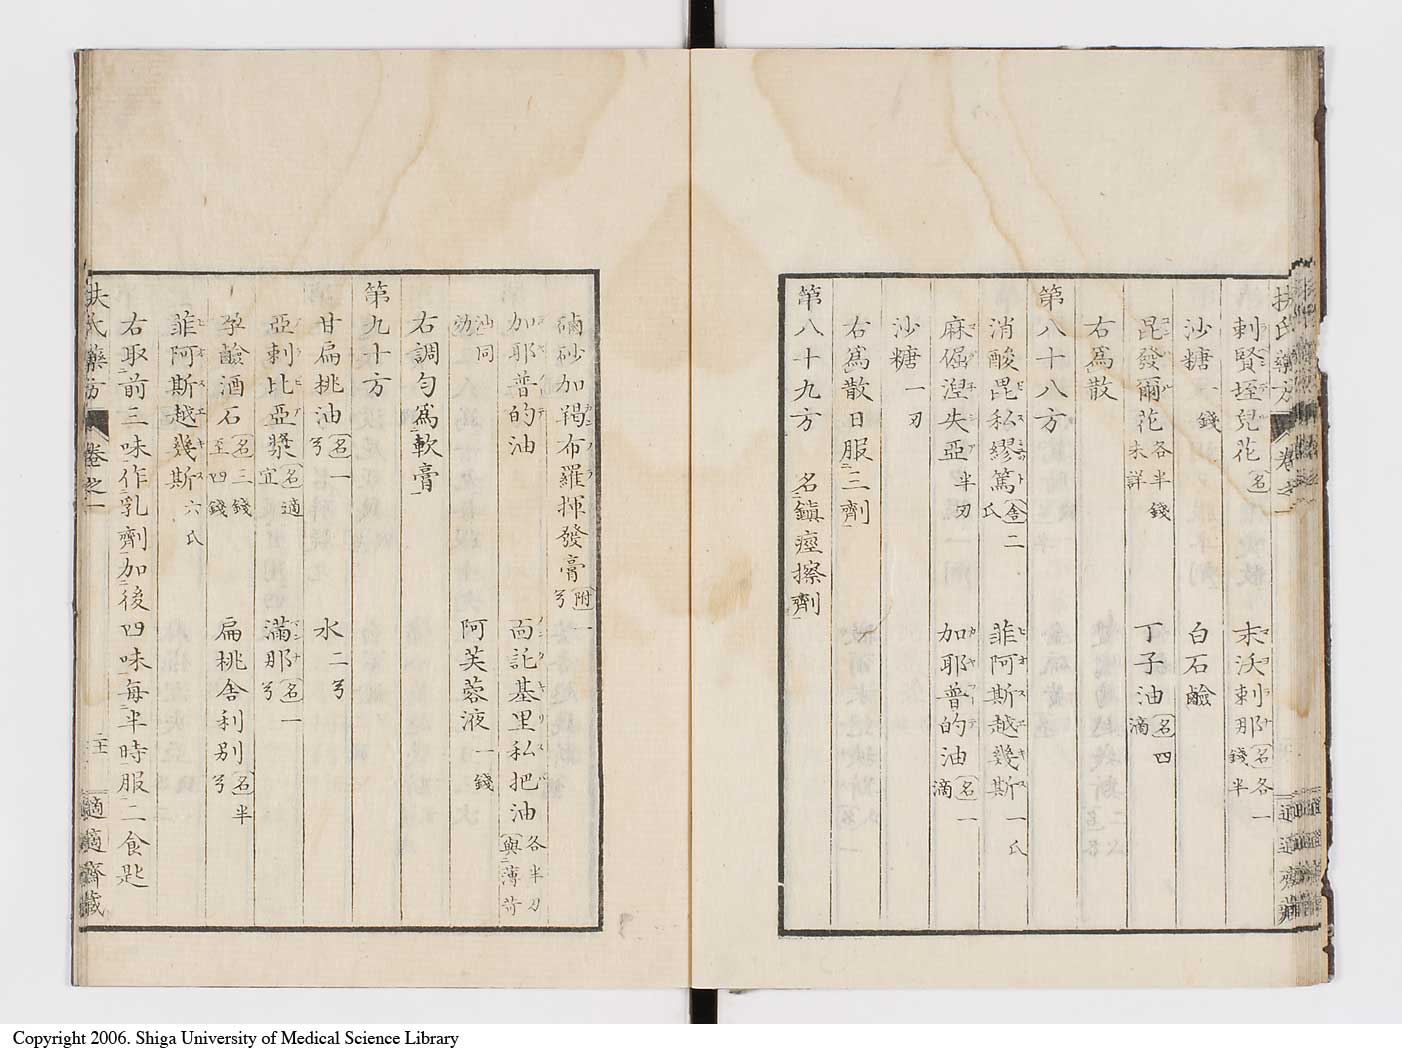 扶氏藥方 卷之一 適適齋藏
刺賢垤兒花 名 末沃刺那 名各一錢半
沙糖 一錢 白石鹼
昆發爾花 各半錢未詳 丁子油 名四滴
右爲散
第八十八方
消酸毘私繆篤 舎二氏 菲阿斯越幾斯 一氏
麻倔涅失亞 半刃 加耶普的油 名一滴
沙糖 一刃
右爲散日服二三劑
第八十九方 名鎮痙擦劑
磠砂加羯布羅揮發膏 附一兮
加耶普的油 而託基里私把油 各半刀與薄荷油同効
阿芙蓉液 一錢
右調勻爲軟膏
第九十方
甘扁桃油 名一兮 水 二兮
亞刺比亞漿 名適宜 滿那 名一兮
孕鹼酒石 名三錢至四錢 扁桃舎利別 名半兮
菲阿斯越幾斯 六氏
右取前三味作乳劑加後四味每半時服一二食匙
扶氏藥方 卷之一 二十 適適齋藏
Copyright 2006. Shiga University of Medical Science Library